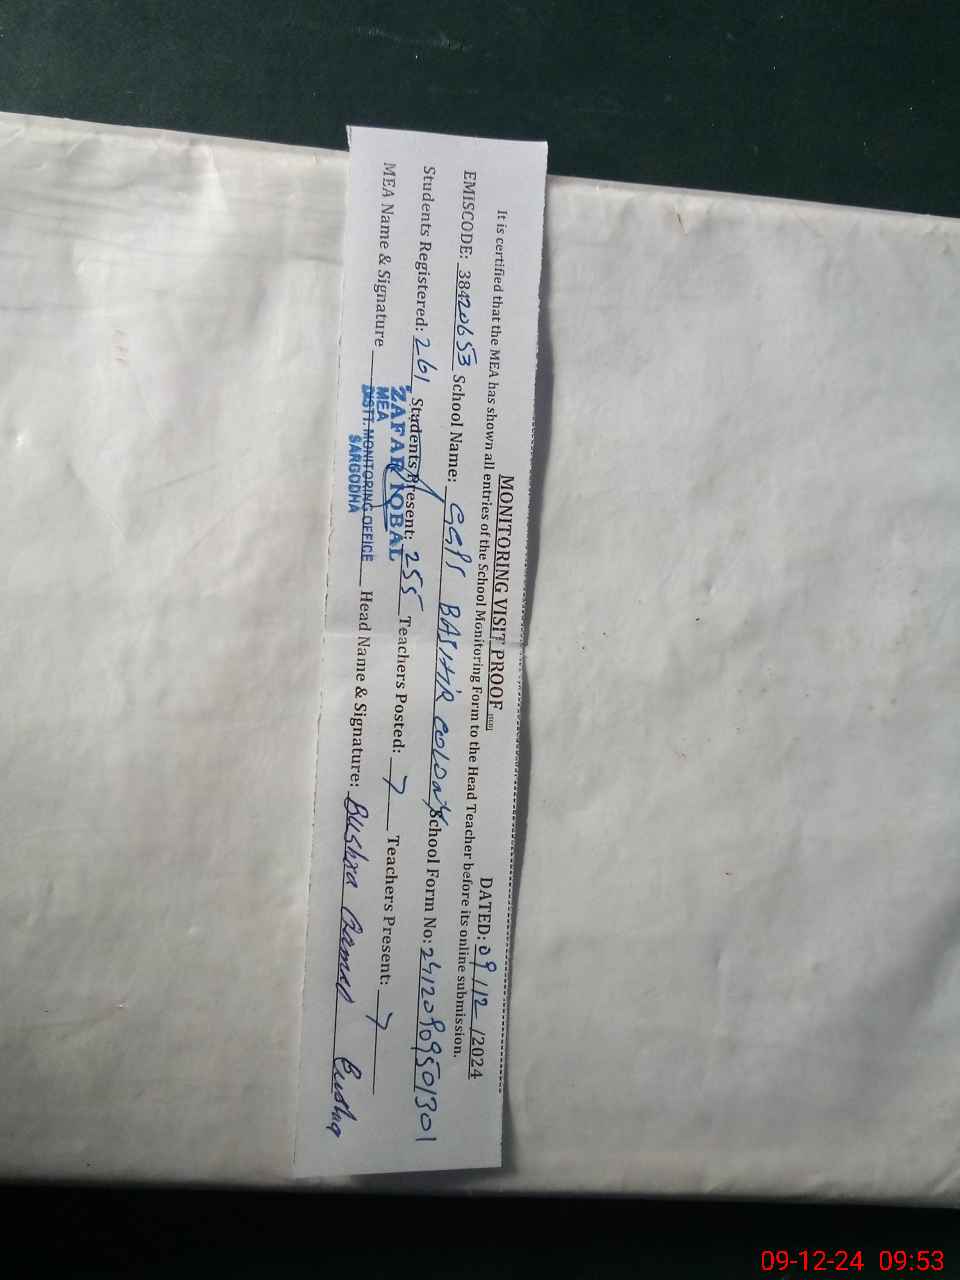 MONITORING VISIT PROOF
DATED: 09/12/2024
It is certified that the MEA has shown all entries of the School Monitoring Form to the Head Teacher before its online submission.
EMISCODE: 38420653 School Name: GGPS BASHIR COLONY School Form No: 24120909501301
Students Registered: 261 Students Present: 255 Teachers Posted: 7 Teachers Present: 7
MEA Name & Signature Head Name & Signature: Bushra Bushra
ZAFAR IQBAL
MEA
DISTT. MONITORING OFFICE
SARGODHA
09-12-24 09:53